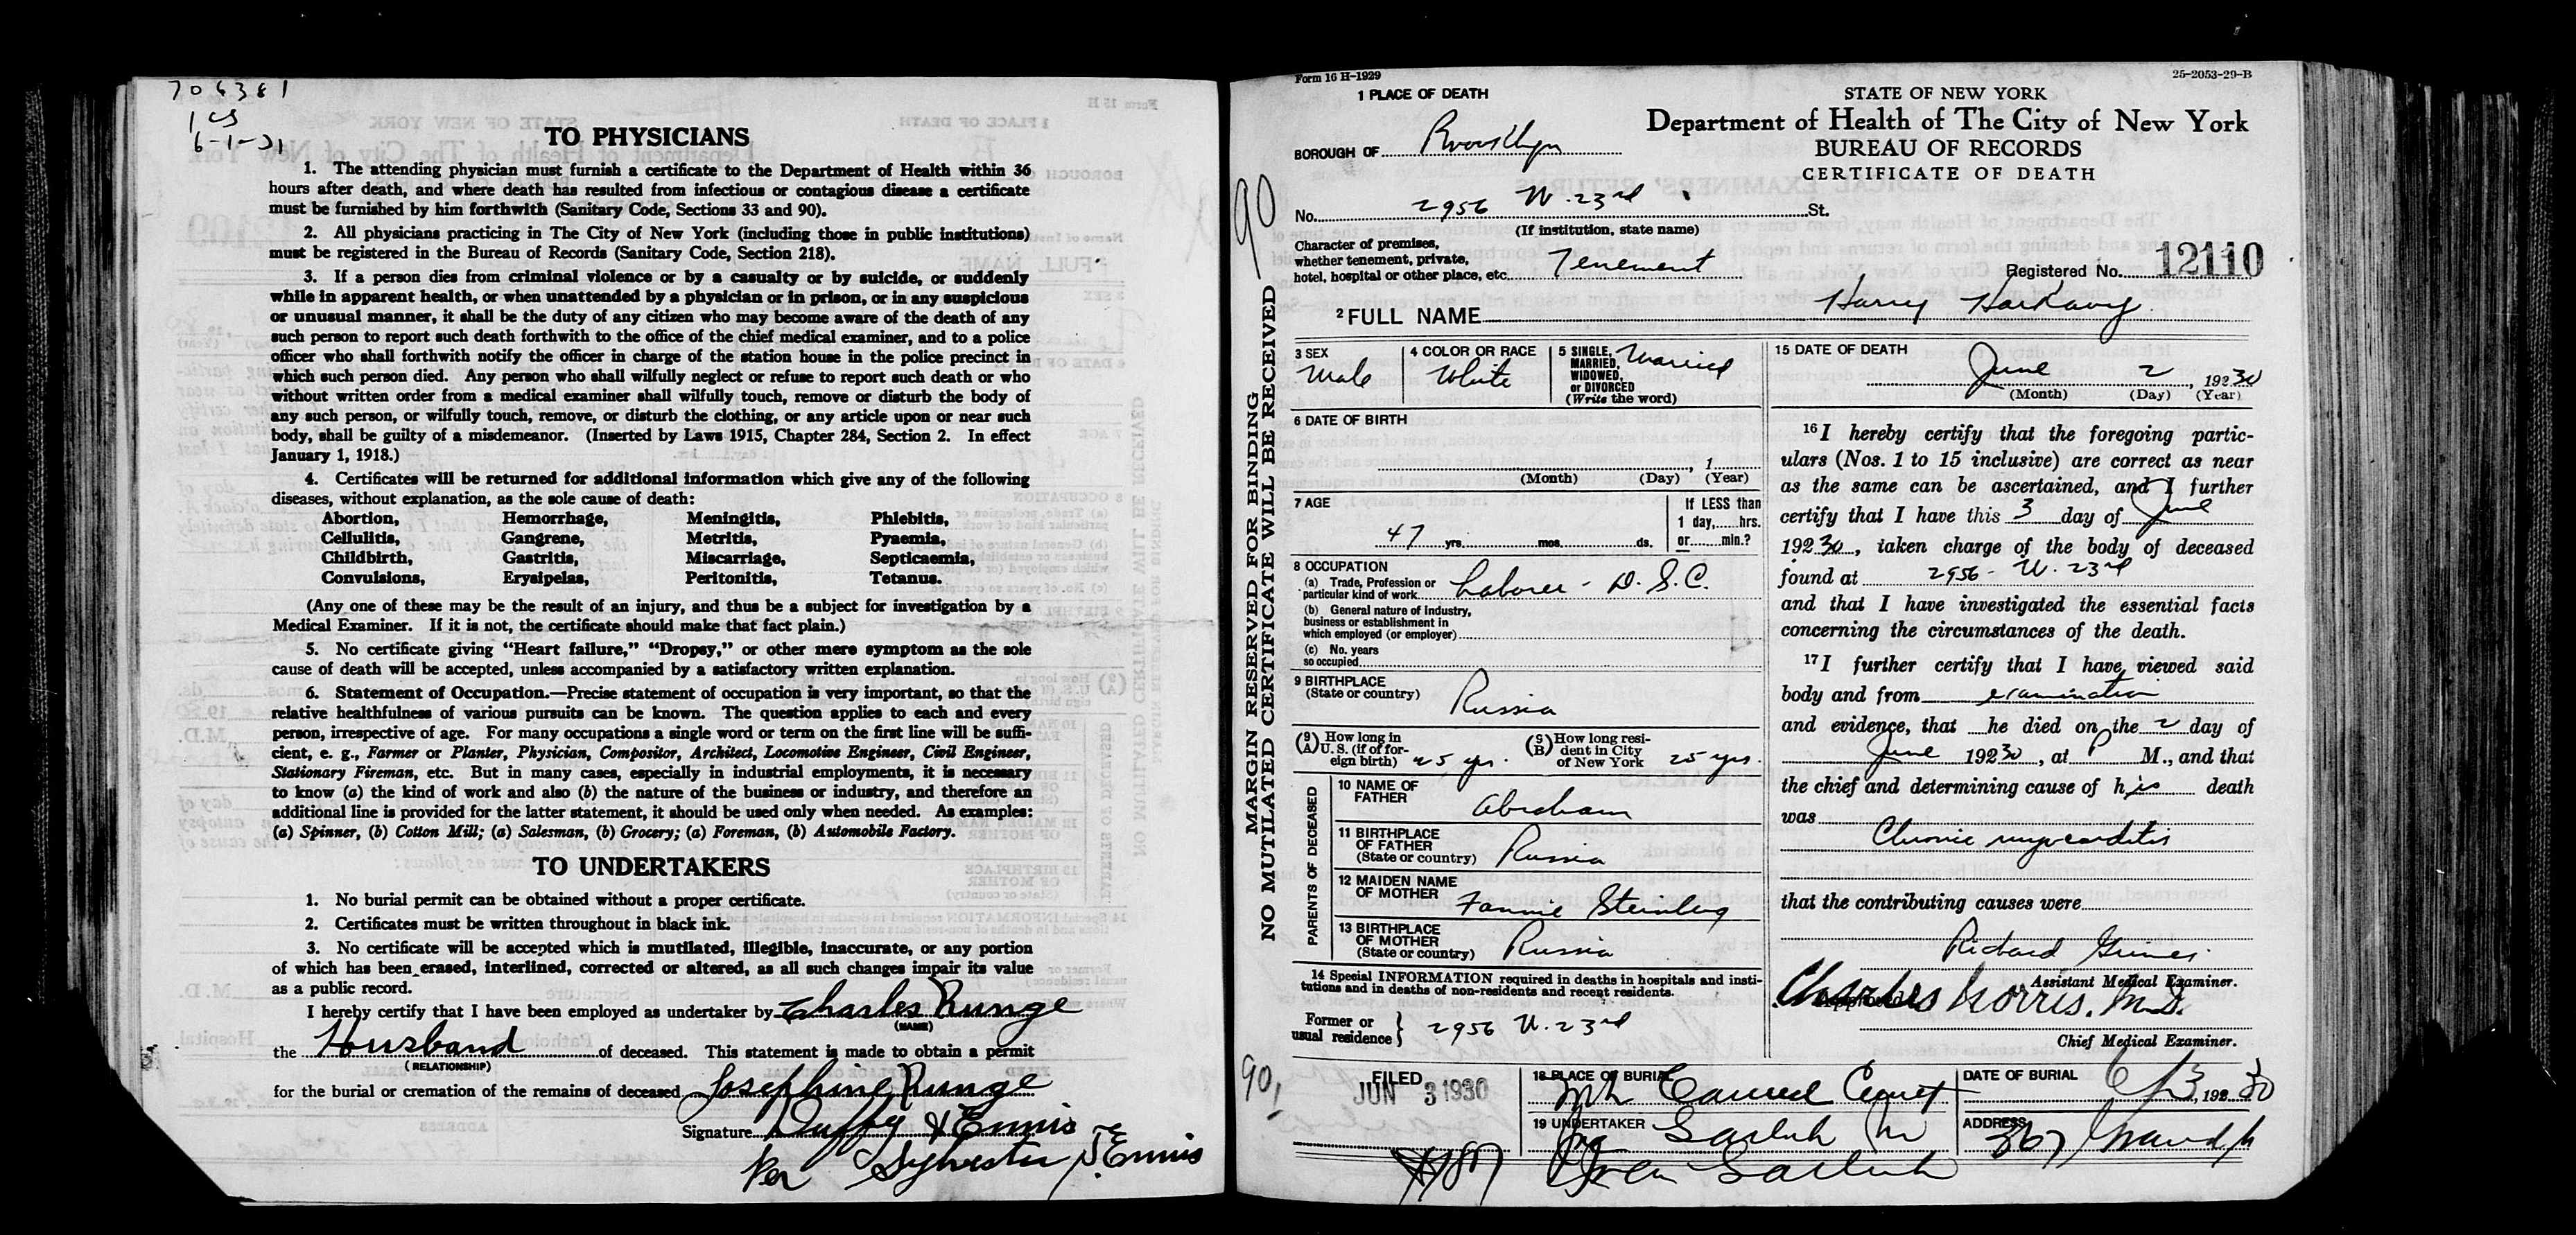 706381
1 cs
6-1-31
TO PHYSICIANS
1. The attending physician must furnish a certificate to the Department of Health within 36
hours after death, and where death has resulted from infectious or contagious disease a certificate
must be furnished by him forthwith (Sanitary Code, Sections 33 and 90).
2. All physicians practicing in The City of New York (including those in public institutions)
must be registered in the Bureau of Records (Sanitary Code, Section 218).
3. If a person dies from criminal violence or by a casualty or by suicide, or suddenly
while in apparent health, or when unattended by a physician or in prison, or in any suspicious
or unusual manner, it shall be the duty of any citizen who may become aware of the death of any
such person to report such death forthwith to the office of the chief medical examiner, and to a police
officer who shall forthwith notify the officer in charge of the station house in the police precinct in
which such person died. Any person who shall wilfully neglect or refuse to report such death or who
without written order from a medical examiner shall wilfully touch, remove or disturb the body of
any such person, or wilfully touch, remove, or disturb the clothing, or any article upon or near such
body, shall be guilty of a misdemeanor. (Inserted by Laws 1915, Chapter 284, Section 2. In effect
January 1, 1918.)
4. Certificates will be returned for additional information which give any of the following
diseases, without explanation, as the sole cause of death:
Abortion, Hemorrhage, Meningitis, Phlebitis,
Cellulitis, Gangrene, Metritis, Pyaemia,
Childbirth, Gastritis, Miscarriage, Septicaemia,
Convulsions, Erysipelas, Peritonitis, Tetanus.
(Any one of these may be the result of an injury, and thus be a subject for investigation by a
Medical Examiner. If it is not, the certificate should make that fact plain.)
5. No certificate giving “Heart failure,” “Dropsy,” or other mere symptom as the sole
cause of death will be accepted, unless accompanied by a satisfactory written explanation.
6. Statement of Occupation.—Precise statement of occupation is very important, so that the
relative healthfulness of various pursuits can be known. The question applies to each and every
person, irrespective of age. For many occupations a single word or term on the first line will be suffi-
cient, e. g., Farmer or Planter, Physician, Compositor, Architect, Locomotive Engineer, Civil Engineer,
Stationary Fireman, etc. But in many cases, especially in industrial employments, it is necessary
to know (a) the kind of work and also (b) the nature of the business or industry, and therefore an
additional line is provided for the latter statement, it should be used only when needed. As examples:
(a) Spinner, (b) Cotton Mill; (a) Salesman, (b) Grocery; (a) Foreman, (b) Automobile Factory.
TO UNDERTAKERS
1. No burial permit can be obtained without a proper certificate.
2. Certificates must be written throughout in black ink.
3. No certificate will be accepted which is mutilated, illegible, inaccurate, or any portion
of which has been erased, interlined, corrected or altered, as all such changes impair its value
as a public record.
I hereby certify that I have been employed as undertaker by Charles Runge
(NAME)
the Husband of deceased. This statement is made to obtain a permit
(RELATIONSHIP)
for the burial or cremation of the remains of deceased Josephine Runge
Signature Duffy & Ennis
Per Sylvester J. Ennis
Form 16 H-1929
25-2053-29-B
MARGIN RESERVED FOR BINDING
NO MUTILATED CERTIFICATE WILL BE RECEIVED
90
90
1 PLACE OF DEATH
STATE OF NEW YORK
Department of Health of The City of New York
BUREAU OF RECORDS
CERTIFICATE OF DEATH
BOROUGH OF Brooklyn
No. 2956 W. 23rd St.
(If institution, state name)
Character of premises,
whether tenement, private,
hotel, hospital or other place, etc. Tenement
Registered No. 12110
2 FULL NAME Harry Harkavy
3 SEX
Male
4 COLOR OR RACE
White
5 SINGLE, MARRIED, WIDOWED, or DIVORCED (Write the word)
Married
6 DATE OF BIRTH
, 1
(Month) (Day) (Year)
7 AGE
47 yrs. mos. ds.
If LESS than
1 day, hrs.
or min.?
8 OCCUPATION
(a) Trade, Profession or
particular kind of work Laborer - D. S. C.
(b) General nature of Industry,
business or establishment in
which employed (or employer)
(c) No. years
so occupied
9 BIRTHPLACE
(State or country) Russia
(9A) How long in U. S. (if of foreign birth) 25 yrs.
(9B) How long resident in City of New York 25 yrs.
PARENTS OF DECEASED
10 NAME OF
FATHER Abraham
11 BIRTHPLACE
OF FATHER
(State or country) Russia
12 MAIDEN NAME
OF MOTHER Fannie Steinberg
13 BIRTHPLACE
OF MOTHER
(State or country) Russia
14 Special INFORMATION required in deaths in hospitals and insti-
tutions and in deaths of non-residents and recent residents.
Former or
usual residence } 2956 W. 23rd
15 DATE OF DEATH
June 2, 1930
(Month) (Day) (Year)
16 I hereby certify that the foregoing partic-
ulars (Nos. 1 to 15 inclusive) are correct as near
as the same can be ascertained, and I further
certify that I have this 3 day of June
192 30, taken charge of the body of deceased
found at 2956 - W. 23rd
and that I have investigated the essential facts
concerning the circumstances of the death.
17 I further certify that I have viewed said
body and from examination
and evidence, that he died on the 2 day of
June 192 30, at P M., and that
the chief and determining cause of his death
was
Chronic myocarditis
that the contributing causes were
Richard Grimes
Assistant Medical Examiner.
Approved
Charles Norris, M.D.
Chief Medical Examiner.
FILED
JUN 3 1930
18 PLACE OF BURIAL
Mt Carmel Cemet
DATE OF BURIAL
6/3, 192 30
19 UNDERTAKER
ADDRESS
367 Grand St